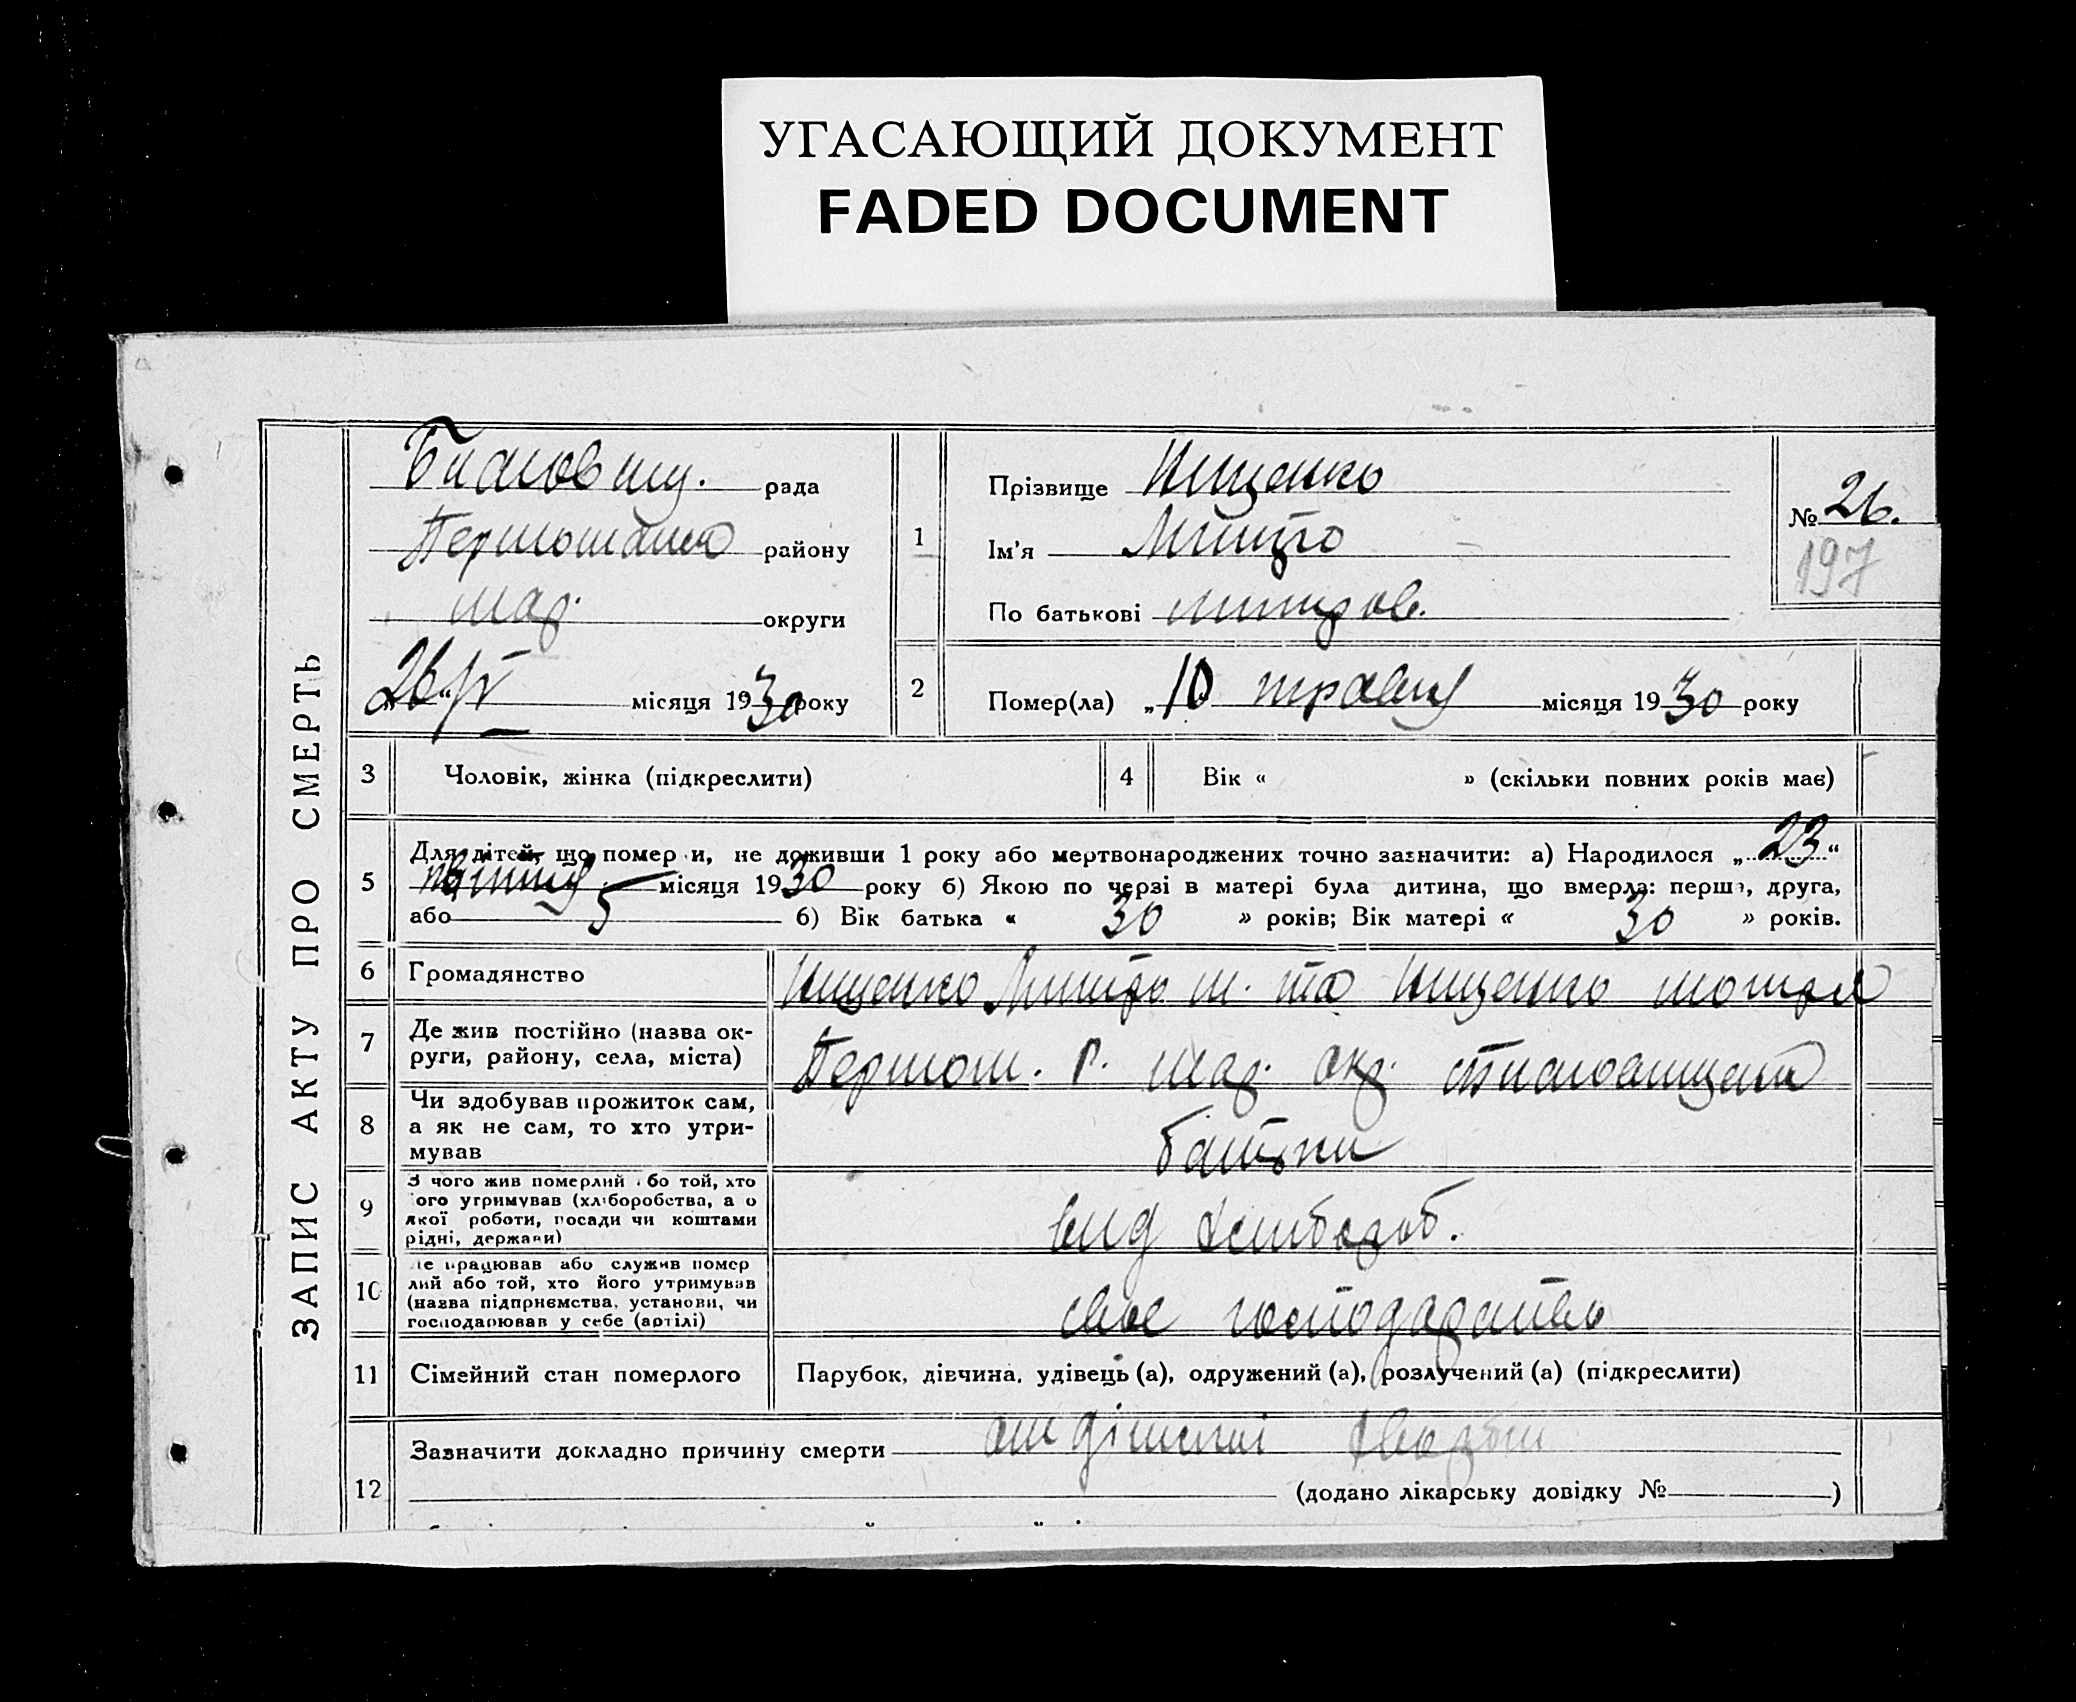 УГАСАЮЩИЙ ДОКУМЕНТ
FADED DOCUMENT
ЗАПИС АКТУ ПРО СМЕРТЬ
рада
району
мар. округи
26 місяця 1930 року
1
Прізвище Нищенко
Ім'я Митро
По батькові митров.
№ 26.
197
2
Помер(ла) „10 травня місяця 1930 року
3 Чоловік, жінка (підкреслити)
4 Вік « » (скільки повних років має)
5
Для дітей, що помер и, не доживши 1 року або мертвонароджених точно зазначити: а) Народилося „23“
квітня місяця 1930 року б) Якою по черзі в матері була дитина, що вмерла: перша, друга,
або 5 б) Вік батька « 30 » років; Вік матері « 30 » років.
6 Громадянство Нищенко Митро та Нищенко
7 Де жив постійно (назва ок-
руги, району, села, міста) Першот. р. мар. окр.
8 Чи здобував прожиток сам,
а як не сам, то хто утри-
мував батьки
9 З чого жив померлий або той, хто
ого утримував (хліборобства, а о
якої роботи, посади чи коштами
рідні, держави) вид хлибороб.
10 е працював або служив помер
лий або той, хто його утримував
(назва підприємства, установи, чи
господарював у себе (артілі) свое господарство
11 Сімейний стан померлого Парубок, дівчина, удівець (а), одружений (а), розлучений (а) (підкреслити)
12
Зазначити докладно причину смерти
(додано лікарську довідку № )